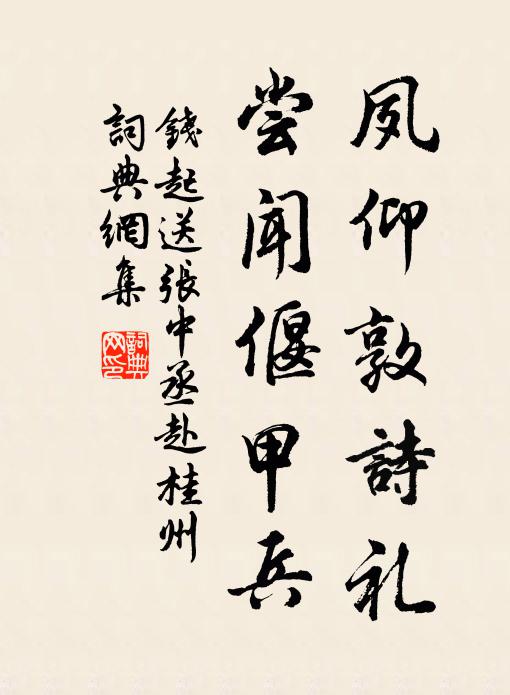 夙仰敦詩礼
尝闻偃甲兵
錢起送張中丞赴桂州
詞典網集
詞典网印